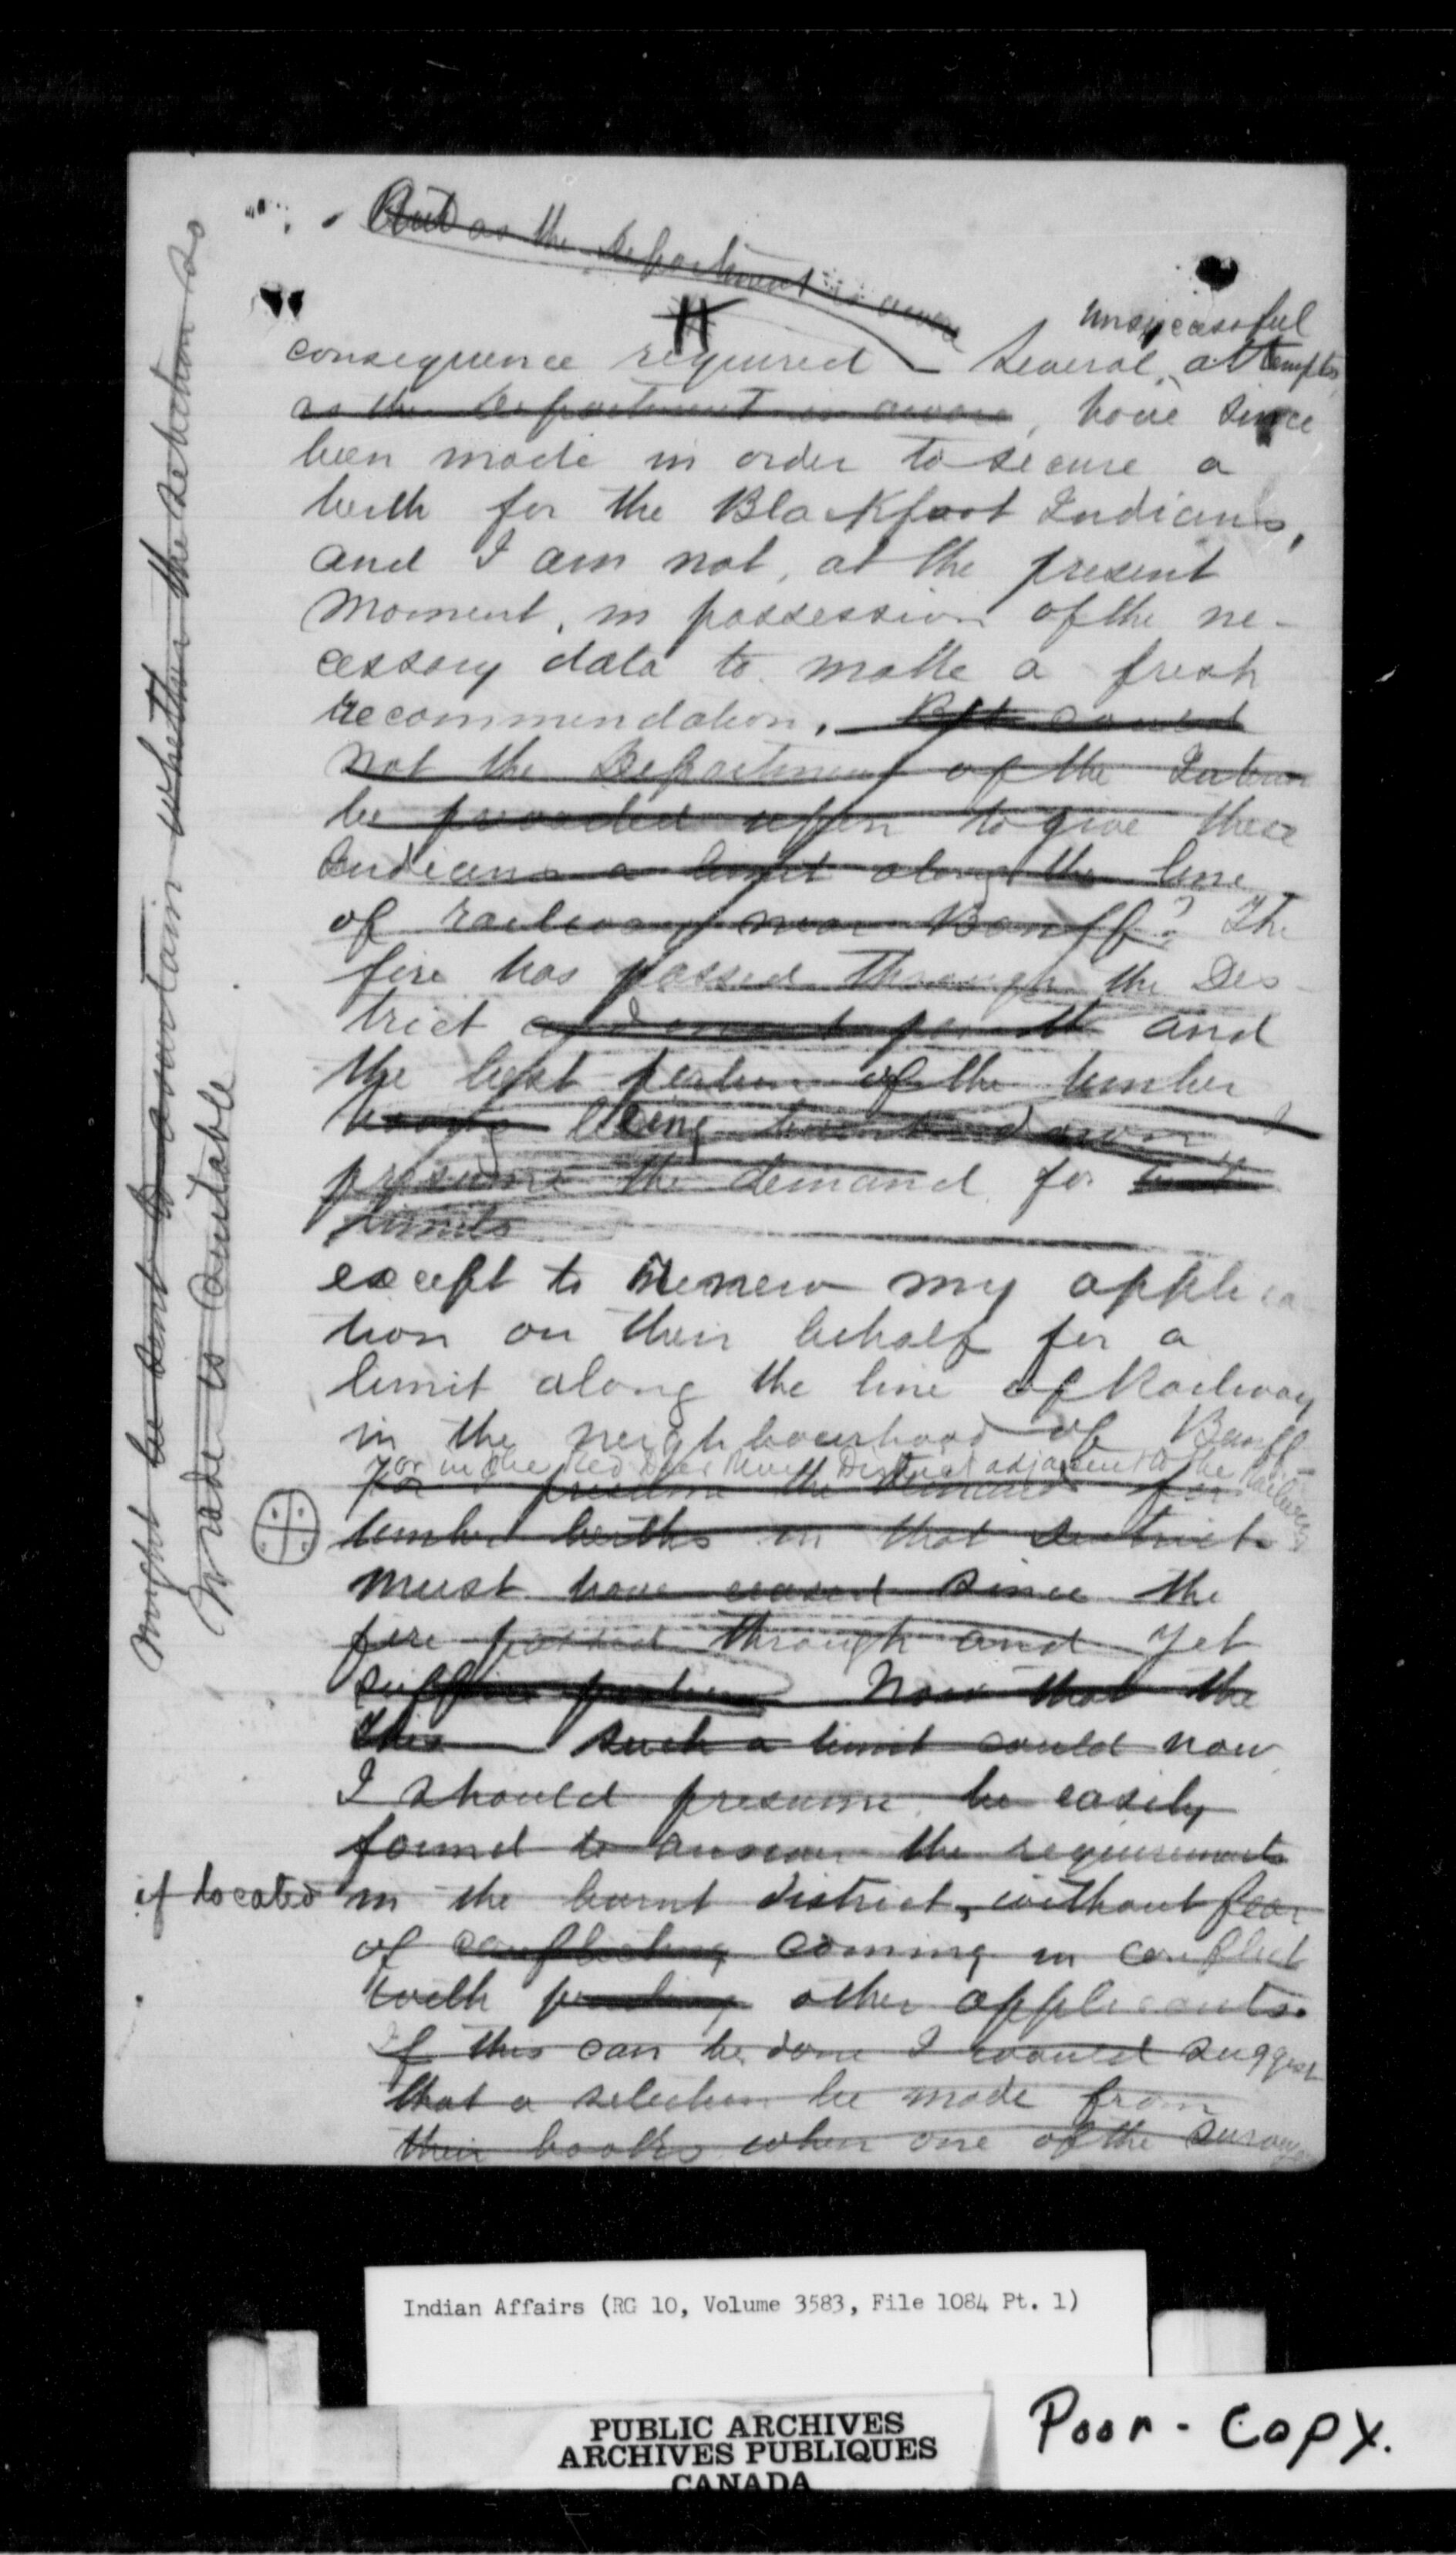 But as the Department is aware
unsuccessful
consequence required – Several attempts
as the Department is aware, have since
been made in order to secure a
berth for the Blackfoot Indians,
and I am not, at the present
moment, in possession of the ne-
cessary data to make a fresh
recommendation. But could
not the Department of the Interior
be persuaded upon to give these
Indians a limit along the line
of railway near Banff? The
fire has passed through the Dis-
trict and
the best portion of the timber
having being burnt down I
presume the demand for
limits
except to renew my applica-
tion on their behalf for a
limit along the line of Railway
in the neighbourhood of Banff
or in the Red Deer River District adjacent to the Railway
For I presume the demand for
timber berths in that district
must have ceased since the
fire passed through and yet
Now that the
This such a limit could now
I should presume, be easily
found to answer the requirements
if located in the burnt district, without fear
of conflicting coming in conflict
with pending other applicants.
If this can be done I would suggest
that a selection be made from
their books when one of the surveyors
might be sent to ascertain whether the selection so
made is suitable
Indian Affairs (RG 10, Volume 3583, File 1084 Pt. 1)
PUBLIC ARCHIVES
ARCHIVES PUBLIQUES
CANADA
Poor - Copy.